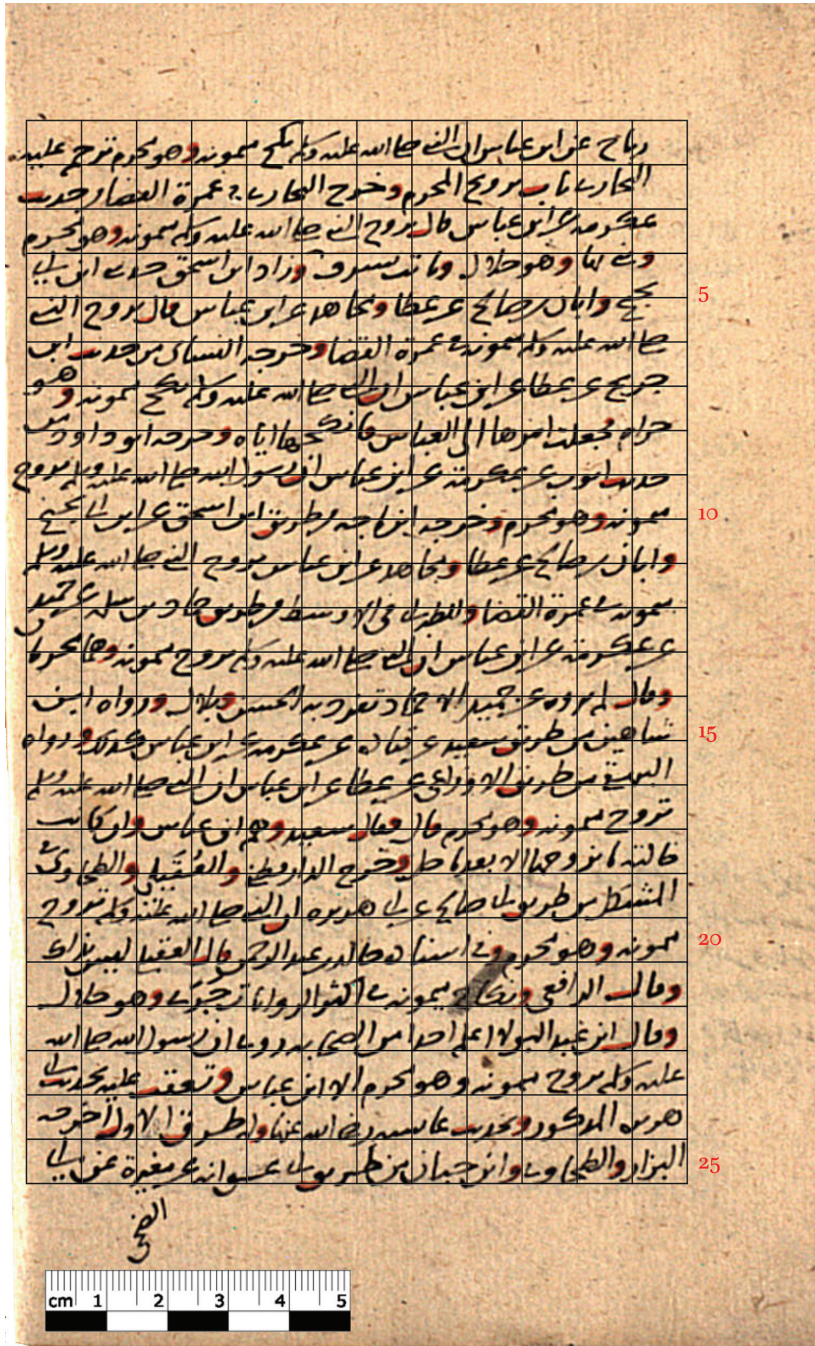 رباح عن ابن عباس ان النبي صلى الله عليه وسلم نكح ميمونة وهو محرم ترجم عليه
البخاري باب تزويج المحرم وخرج البخاري في عمرة القضا من حديث
عكرمة عن ابن عباس قال تزوج النبي صلى الله عليه وسلم ميمونة وهو محرم
وبنى بها وهو حلال وماتت بسرف وزاد ابن اسحق حدثني ابن ابي
5
نجيح وابان بن صالح عن عطا ومجاهد عن ابن عباس قال تزوج النبي
صلى الله عليه وسلم ميمونة في عمرة القضا وخرجه النساي من حديث ابن
جريج عن عطا عن ابن عباس ان النبي صلى الله عليه وسلم نكح ميمونة وهو
حرام فجعلت امرها الى العباس فانكحها اياه وخرجه ابو داود من
حديث ايوب عن عكرمة عن ابن عباس ان رسول الله صلى الله عليه وسلم تزوج
10
ميمونة وهو محرم وخرجه ابن ماجه من طريق ابن اسحق عن ابن ابي نجيح
وابان بن صالح عن عطا ومجاهد عن ابن عباس تزوج النبي صلى الله عليه وسلم
ميمونة في عمرة القضا وللطبراني في الاوسط من طريق حماد بن سلمة عن حميد
عن عكرمة عن ابن عباس ان النبي صلى الله عليه وسلم تزوج ميمونة وهما محرمان
وقال لم يروه عن حميد الا حماد تفرد به الحسن بن بلال ورواه ابن
15
شاهين من طريق سعيد عن قتادة عن عكرمة عن ابن عباس كذلك ورواه
البيهقي من طريق الاوزاعي عن عطا عن ابن عباس ان النبي صلى الله عليه وسلم
تزوج ميمونة وهو محرم قال فقال سعيد وهم ابن عباس وان كانت
خالته ما تزوجها الا بعد ما حل وخرج الدارقطني والعقيلي والطحاوي في
المشكل من طريق ابي صالح عن ابي هريرة ان النبي صلى الله عليه وسلم تزوج
20
ميمونة وهو محرم وفي اسناده خالد بن عبد الرحمن قال العقيلي ليس بذاك
وقال الرافعي ونكاح ميمونة في اكثر الروايات جرى وهو حلال
وقال ابن عبد البر لا اعلم احدا من الصحابة روى ان رسول الله صلى الله
عليه وسلم تزوج ميمونة وهو محرم الا ابن عباس وتعقب عليه بحديث ابي
هريرة المذكور وبحديث عايشة رضي الله عنها وله طرق الاول اخرجه
25
البزار والطحاوي وابن حبان من طريق ابي عوانة عن مغيرة عن ابي
الضحى
cm 1 2 3 4 5